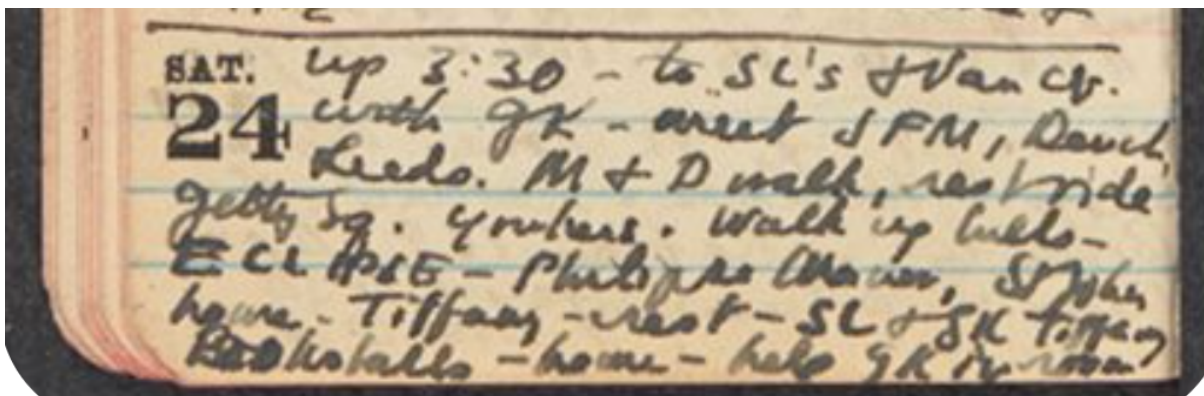 SAT. up 3:30 - to SL's & Van Ct.
24 with GK - meet SFM,
Leeds. M & D walk, rest ride
Getty Sq. Yonkers. Walk up hills -
ECLIPSE - Philipse Manor, St John
home - Tiffany - rest - SL & SK Tiffany
Bookstalls - home - help GK in room